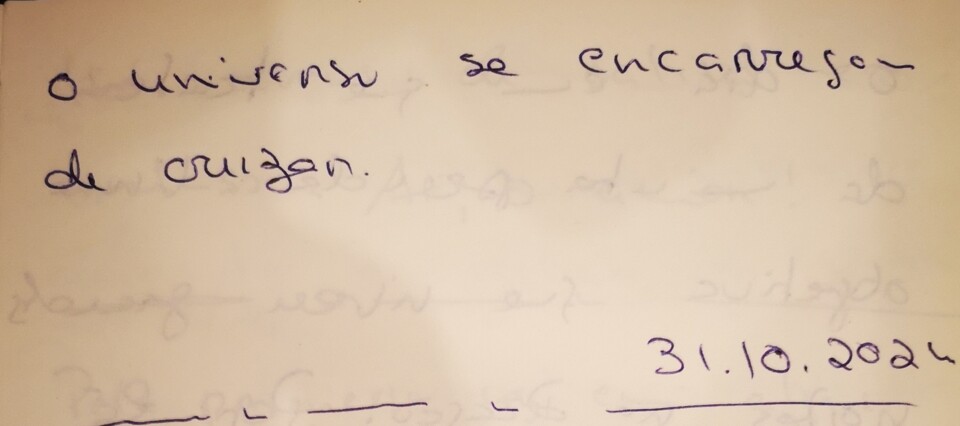 o universo se encarregou
de cruzar.
31.10.2024